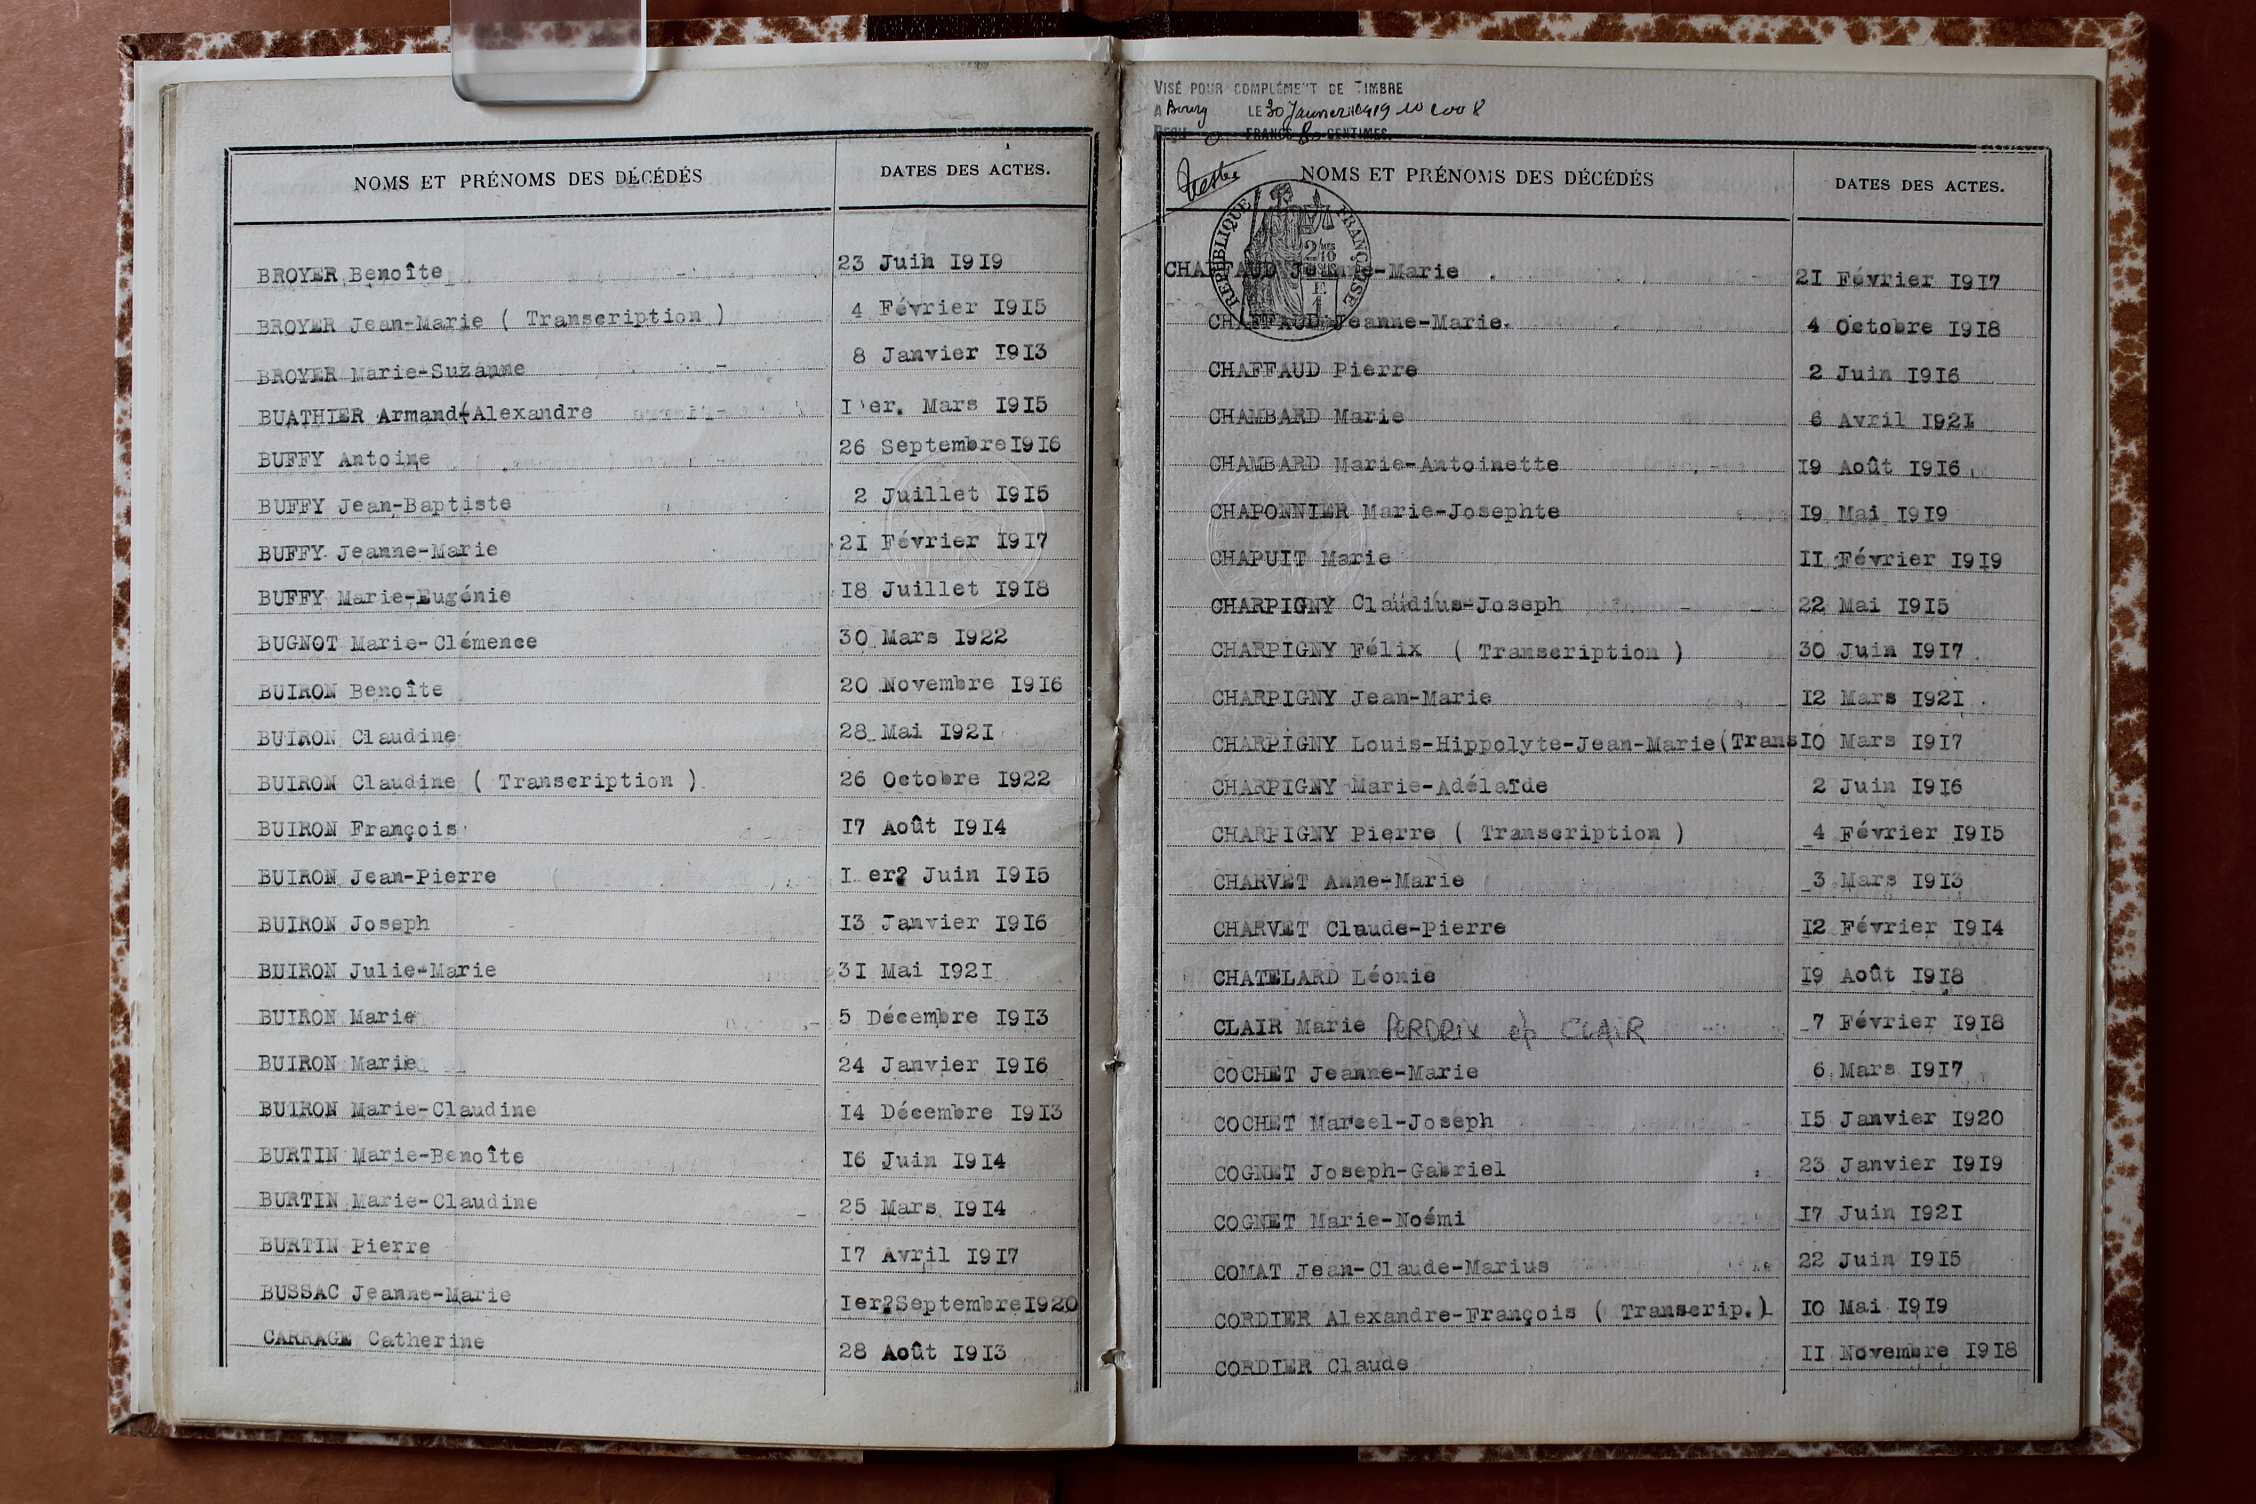 NOMS ET PRÉNOMS DES DÉCÉDÉS DATES DES ACTES.
BROYER Benoîte 23 Juin 1919
BROYER Jean-Marie ( Transcription ) 4 Février 1915
BROYER Marie-Suzanne 8 Janvier 1913
BUATHIER Armand-Alexandre I er. Mars 1915
BUFFY Antoine 26 Septembre 1916
BUFFY Jean-Baptiste 2 Juillet 1915
BUFFY Jeanne-Marie 21 Février 1917
BUFFY Marie-Eugénie 18 Juillet 1918
BUGNOT Marie-Clémence 30 Mars 1922
BUIRON Benoîte 20 Novembre 1916
BUIRON Claudine 28 Mai 1921
BUIRON Claudine ( Transcription ) 26 Octobre 1922
BUIRON François 17 Août 1914
BUIRON Jean-Pierre I er? Juin 1915
BUIRON Joseph 13 Janvier 1916
BUIRON Julie-Marie 31 Mai 1921
BUIRON Marie 5 Décembre 1913
BUIRON Marie 24 Janvier 1916
BUIRON Marie-Claudine 14 Décembre 1913
BURTIN Marie-Benoîte 16 Juin 1914
BURTIN Marie-Claudine 25 Mars 1914
BURTIN Pierre 17 Avril 1917
BUSSAC Jeanne-Marie Ier?Septembre1920
CARRAGE Catherine 28 Août 1913
VISÉ POUR COMPLÉMENT DE TIMBRE
A Bourg LE 30 Janvier 1919
FRANCS CENTIMES.
NOMS ET PRÉNOMS DES DÉCÉDÉS DATES DES ACTES.
RÉPUBLIQUE FRANÇAISE
CHAFFAUD Jeanne-Marie 21 Février 1917
CHAFFAUD Jeanne-Marie 4 Octobre 1918
CHAFFAUD Pierre 2 Juin 1916
CHAMBARD Marie 6 Avril 1921
CHAMBARD Marie-Antoinette 19 Août 1916
CHAPONNIER Marie-Josephte 19 Mai 1919
CHAPUIT Marie 11 Février 1919
CHARPIGNY Claudius-Joseph 22 Mai 1915
CHARPIGNY Félix ( Transcription ) 30 Juin 1917
CHARPIGNY Jean-Marie 12 Mars 1921
CHARPIGNY Louis-Hippolyte-Jean-Marie(Trans 10 Mars 1917
CHARPIGNY Marie-Adélaïde 2 Juin 1916
CHARPIGNY Pierre ( Transcription ) 4 Février 1915
CHARVET Anne-Marie 3 Mars 1913
CHARVET Claude-Pierre 12 Février 1914
CHATELARD Léonie 19 Août 1918
CLAIR Marie PERDRIX ép CLAIR 7 Février 1918
COCHET Jeanne-Marie 6 Mars 1917
COCHET Marcel-Joseph 15 Janvier 1920
COGNET Joseph-Gabriel 23 Janvier 1919
COGNET Marie-Noémi 17 Juin 1921
COMAT Jean-Claude-Marius 22 Juin 1915
CORDIER Alexandre-François ( Transcrip.) 10 Mai 1919
CORDIER Claude 11 Novembre 1918